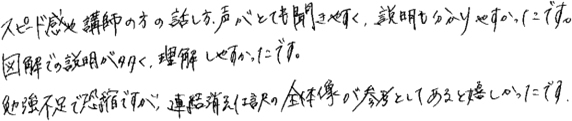 スピード感や講師の方の話し方、声がとても聞きやすく、説明も分かりやすかったです。
図解での説明が多く、理解しやすかったです。
勉強不足で恐縮ですが、連結消去仕訳の全体像が参考としてあると嬉しかったです。